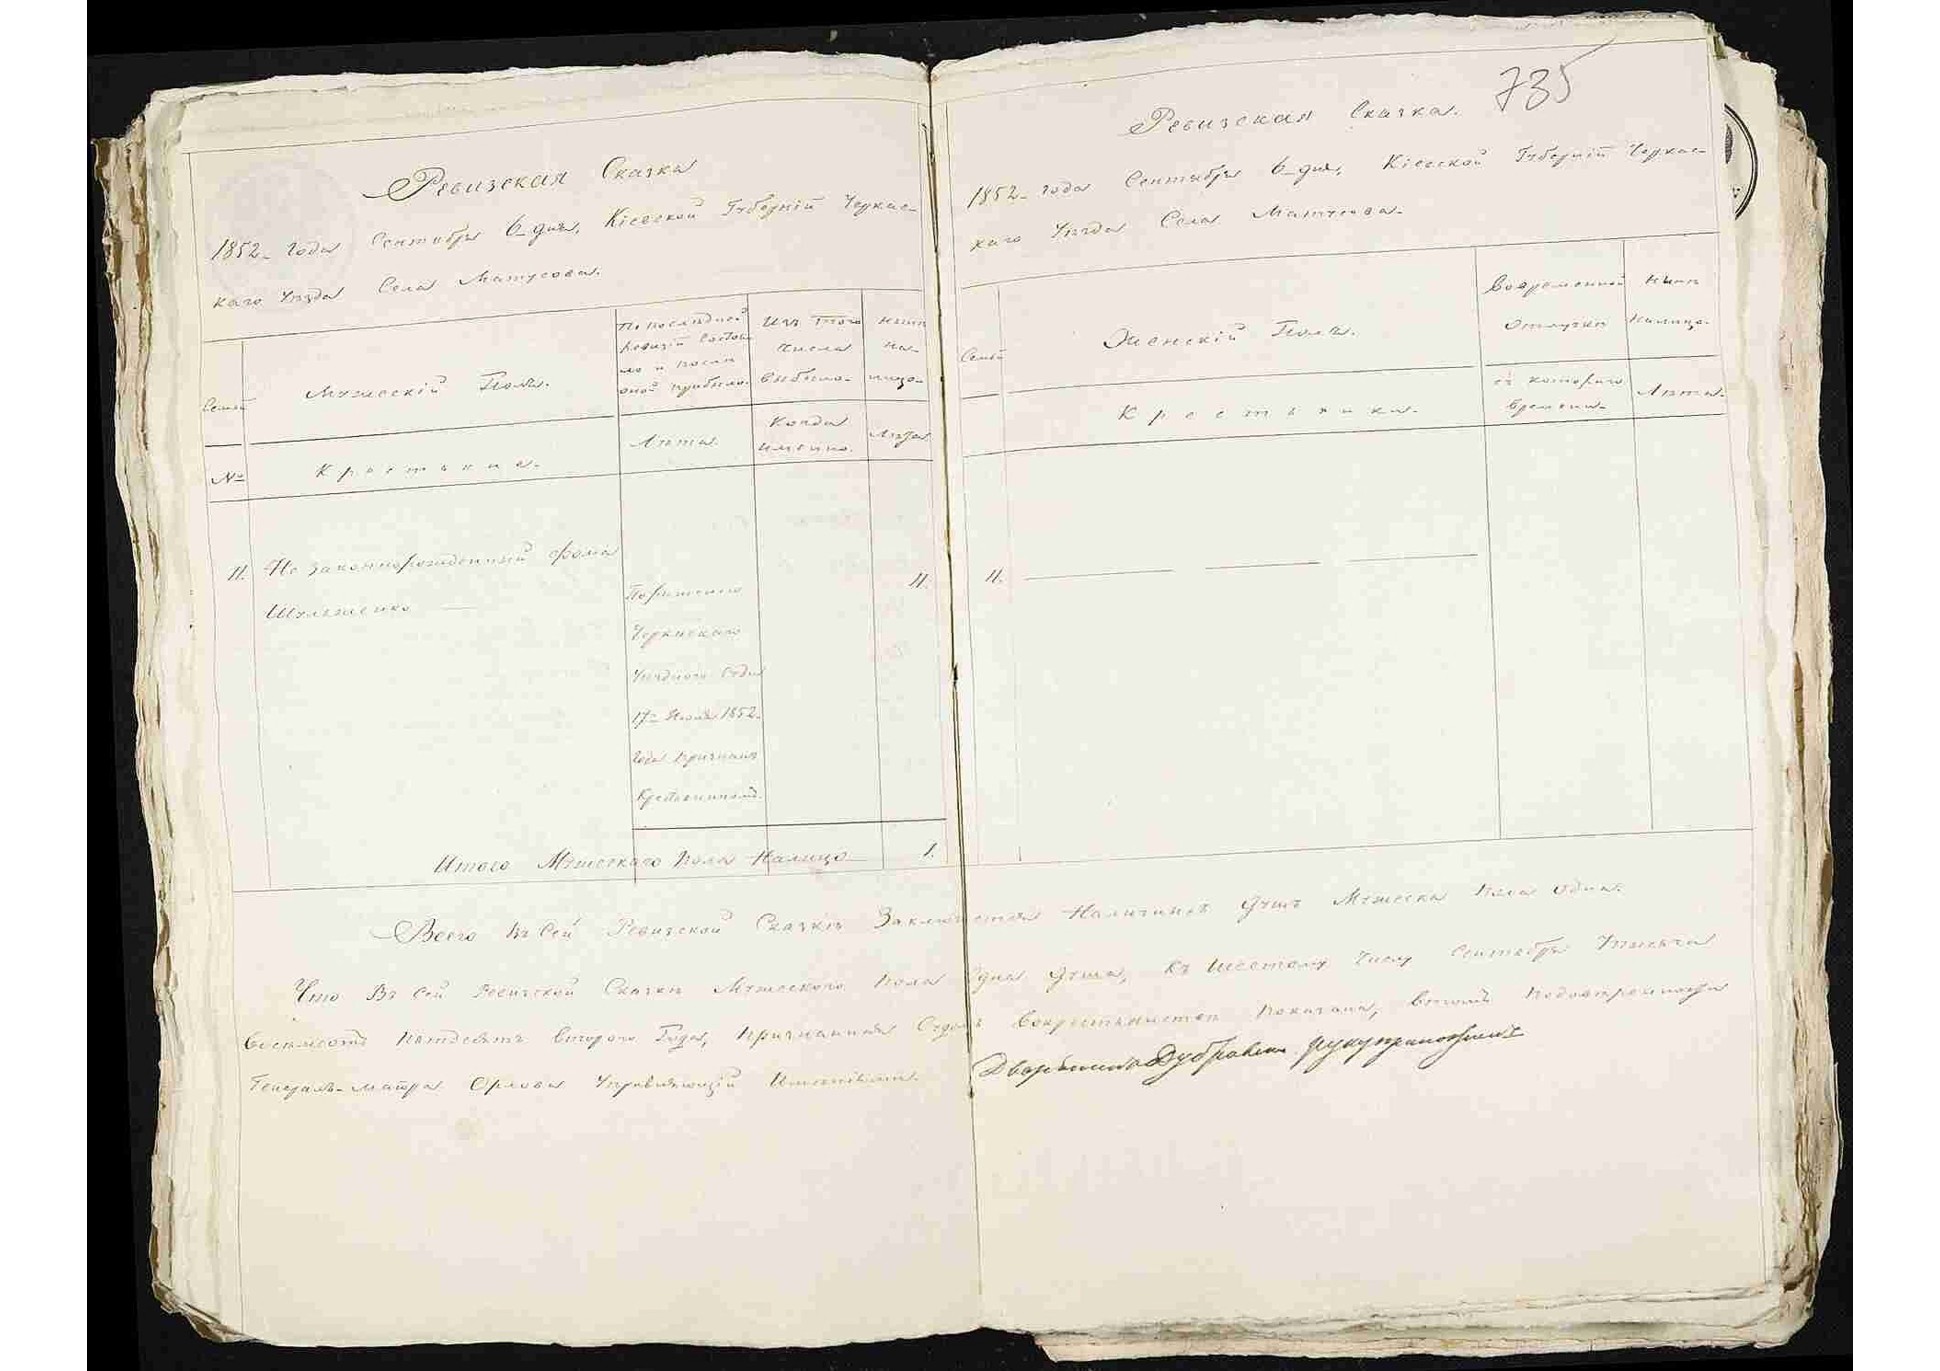 Ревизская Сказка
1852. Года Сентября 6 дня, Кіевской Губерній Черкас-
каго Уѣзда Села Матусова.
Семьи
Мужескій Полъ.
По последней
Ревизіи состоя-
ло и послѣ
оной прибыло.
Изъ того
числа
выбыло.
Нынѣ
на-
лицо.
№
Крестьяне.
Лѣта.
Когда
именно.
Лѣта
11. Не законнорожденный Фома
Шульженко
По рѣшенію
Черкаскаго
Уѣзднаго Суда
17го Іюля 1852.
Года признанъ
Крестьяниномъ.
11.
Итого Мужескаго пола Налицо 1.
735
Ревизская Сказка.
1852. года Сентября 6 дня, Кіевской Губерній Черкас-
каго Уѣзда Села Матусова.
Семьи
Женскій Полъ.
Во временной
Отлучкѣ
Нынѣ
Налицо.
Крестьянки.
съ котораго
времени.
Лѣта.
11.
Всего въ Сей Ревизской Сказкѣ Заключается Наличныхъ Душъ Мужеска пола одна.
Что Въ Сей Ревизской Сказкѣ Мужескаго пола Одна Душа, къ шестому Числу Сентября Тысяча
Восемсотъ Пятдесятъ Втораго Года, признанная Судомъ Вокрестьянство показана, Втомъ
Генералъ-Маіора Орлова Управляющій Имѣніемъ. Дворянинъ руку приложилъ